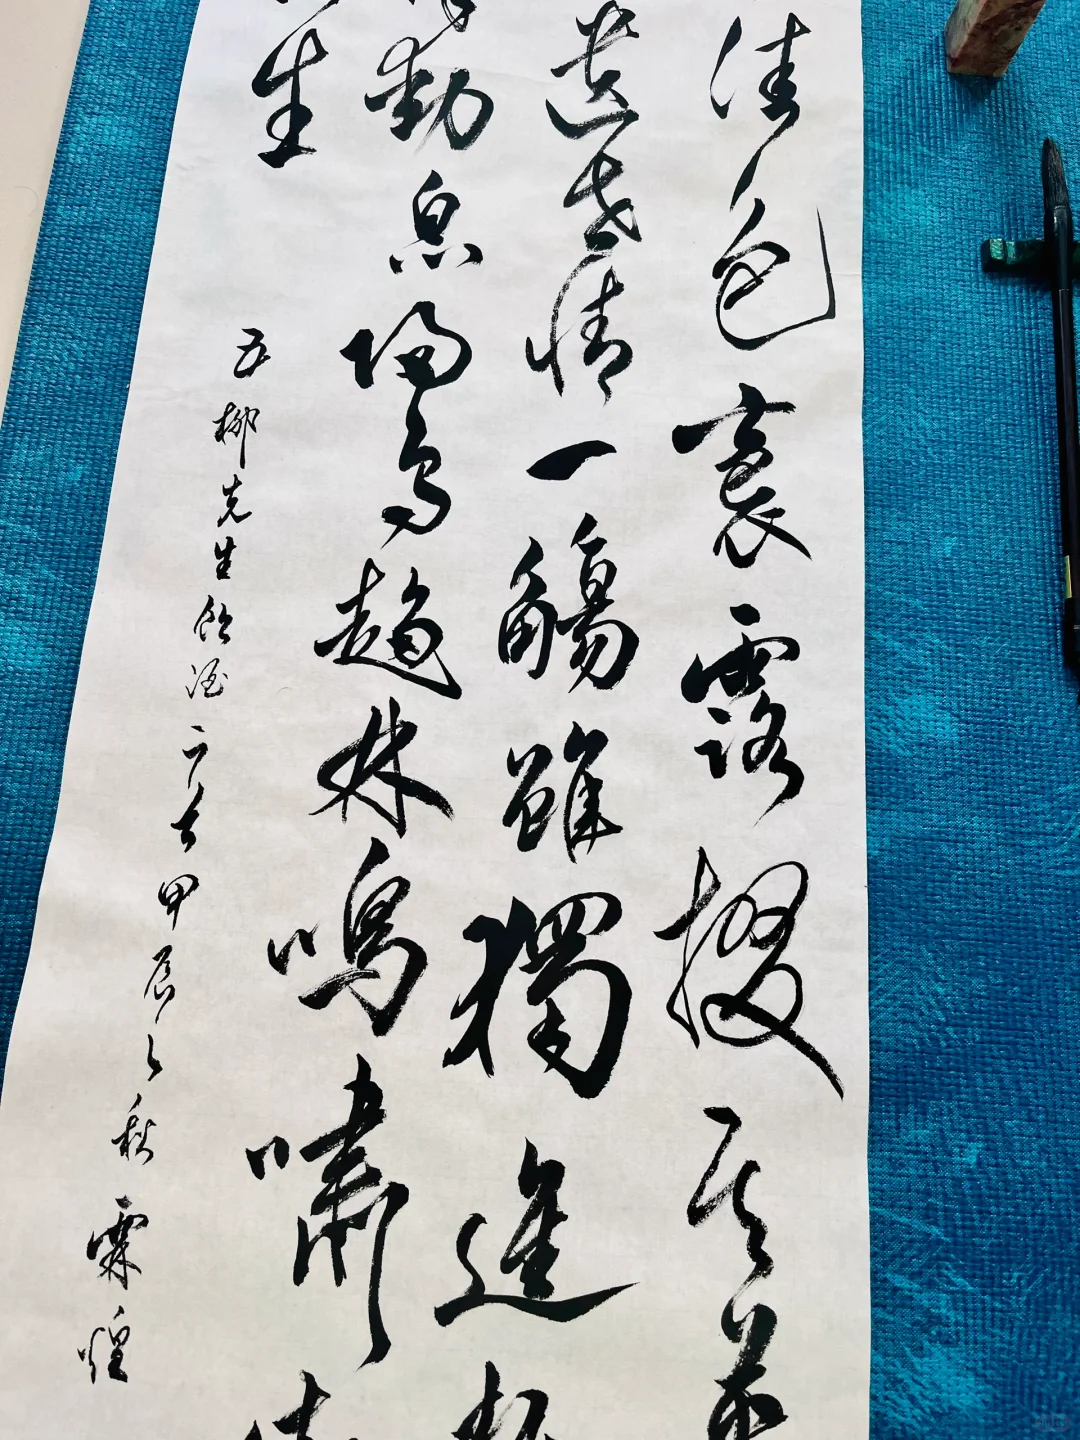 佳色裛露掇其英
遗世情一觞雖獨進
動息歸鳥趨林鳴嘯
生
五柳先生飲酒一首甲辰之秋霖煌